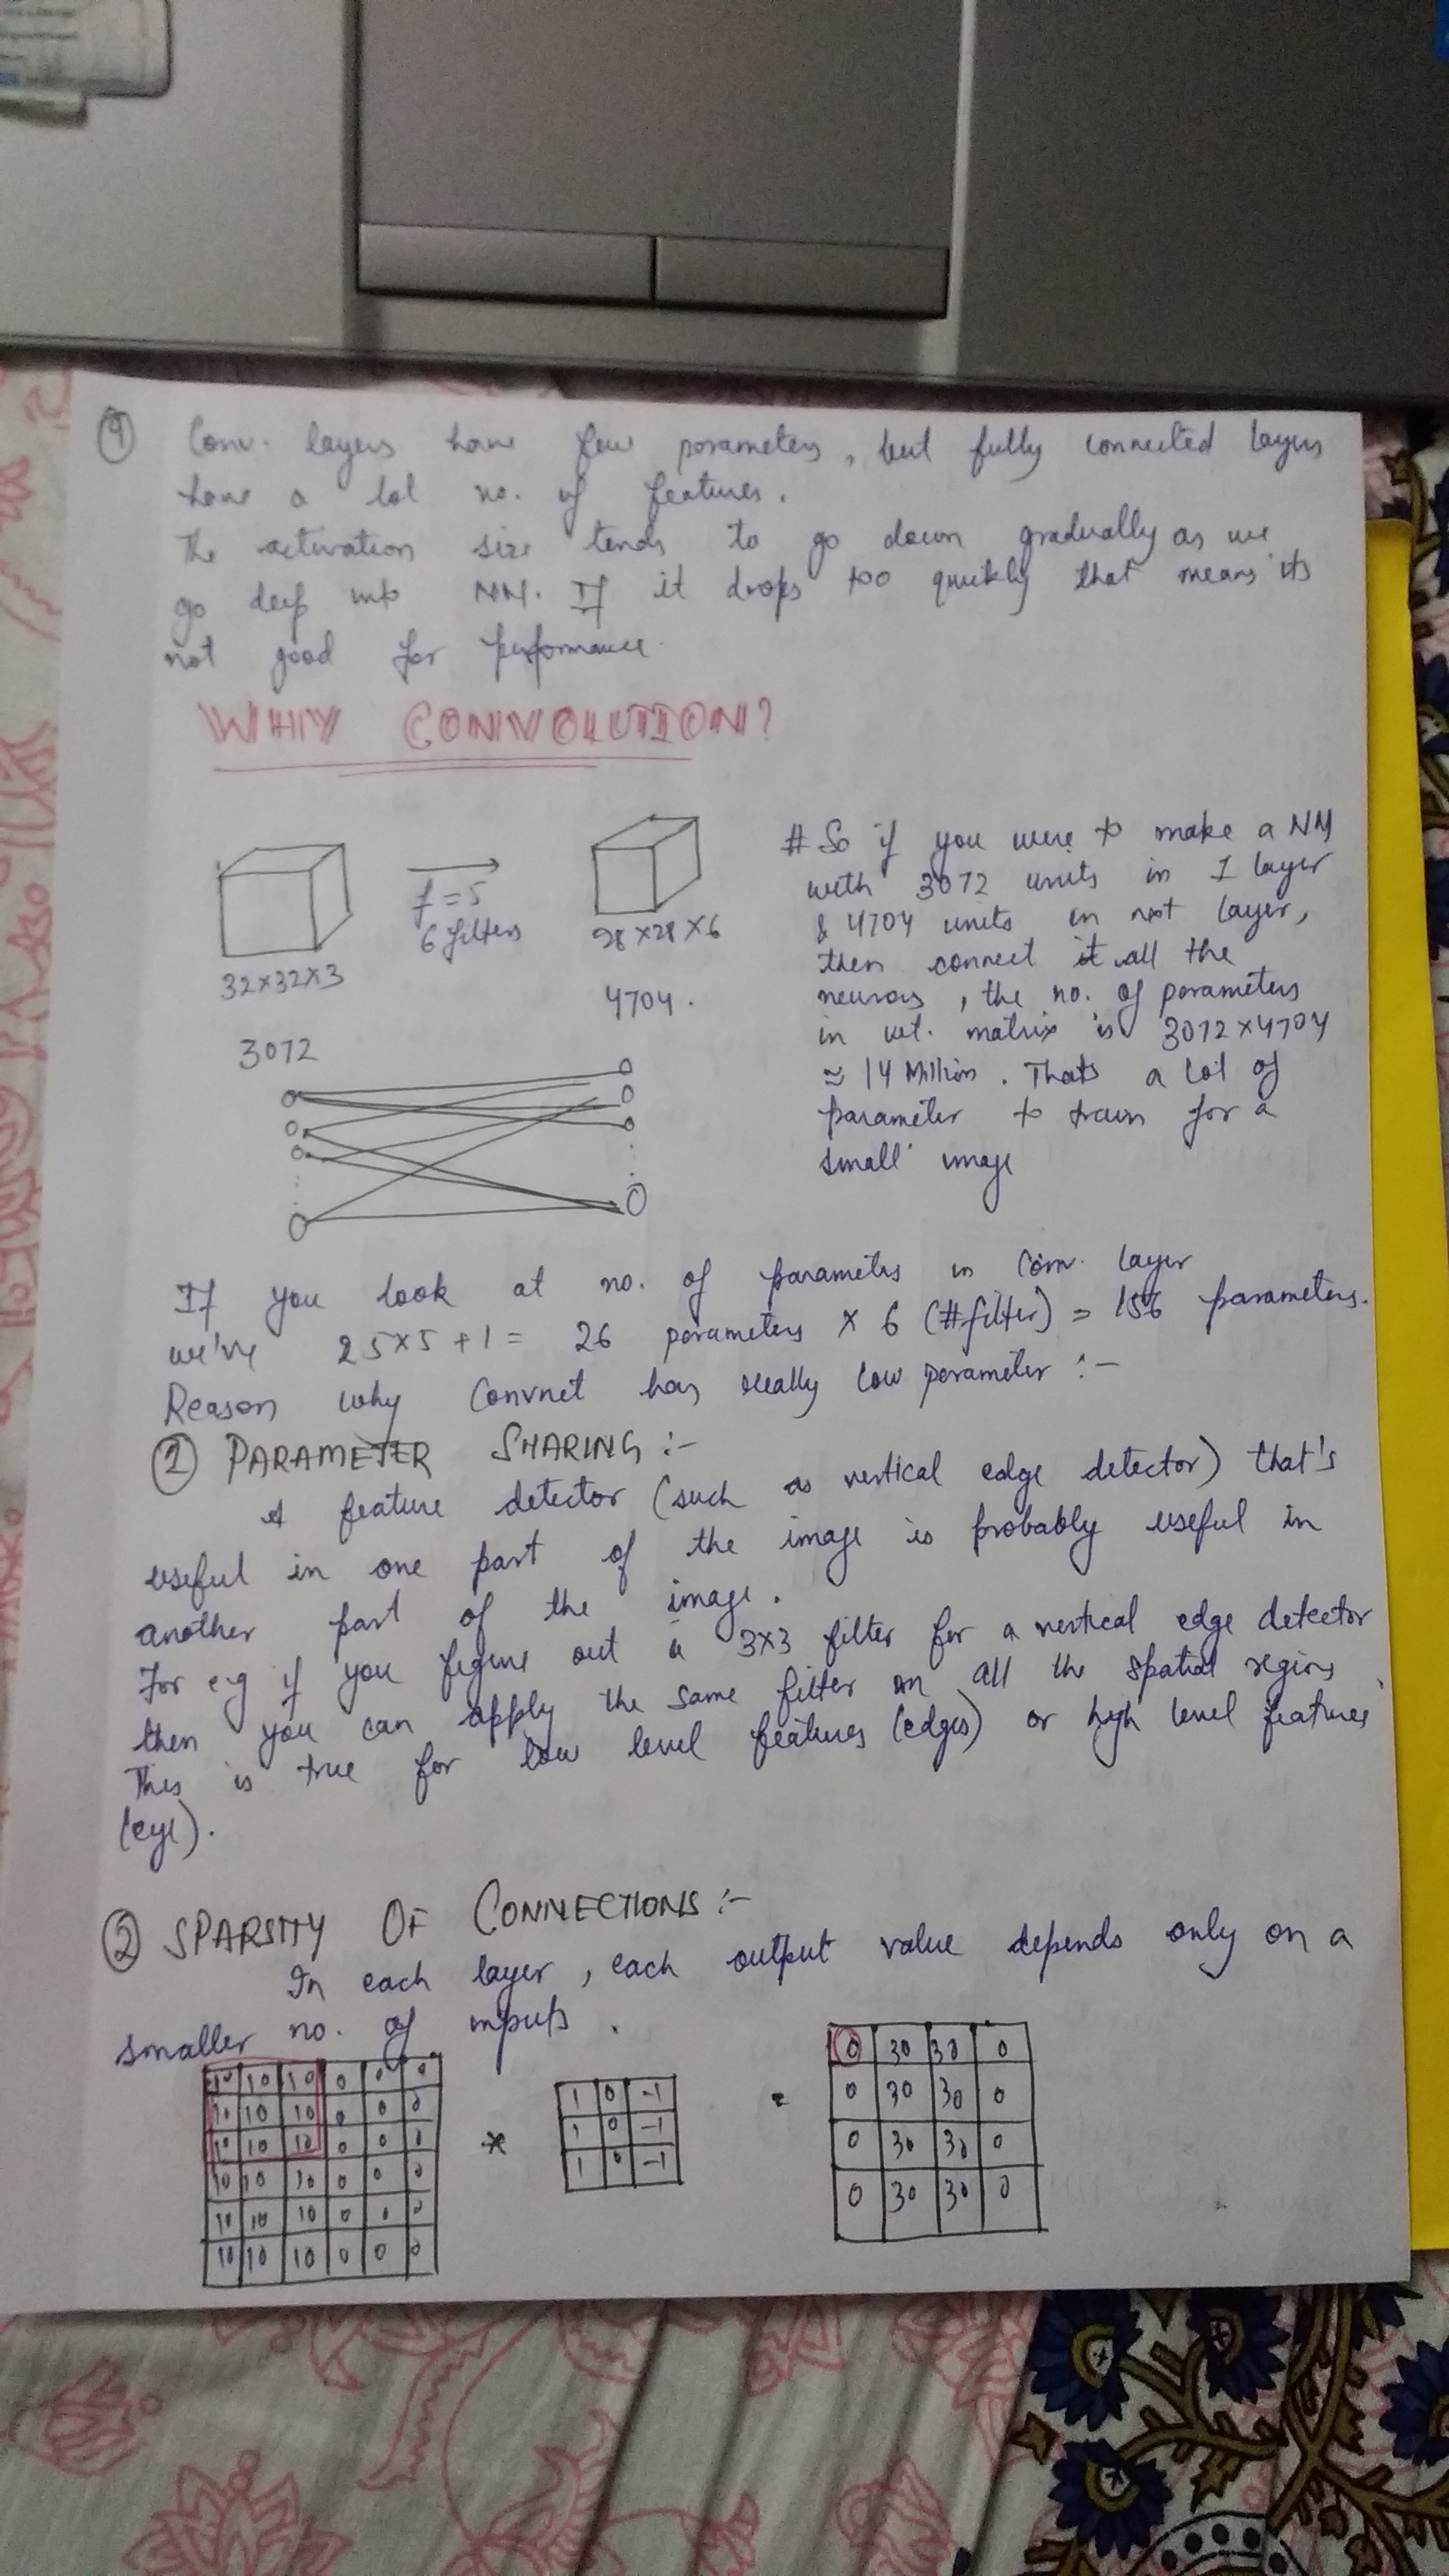 ④ Conv. layers have few parameters, but fully connected layers
have a lol no. of features.
The activation size tends to go down gradually as we
go deep into NN. If it drops too quickly that means its
not good for performance.
WHY CONVOLUTION?
f = 5
6 filters
32×32×3
28×28×6
4704.
3072
# So if you were to make a NN
with 3072 units in 1 layer
& 4704 units in next layer,
then connect it all the
neurons, the no. of parameters
in wt. matrix is 3072×4704
≈ 14 Million. Thats a lot of
parameter to train for a
small image
If you look at no. of parameters in Conv. layer
we've 25×5+1 = 26 parameters × 6 (#filter) = 156 parameters.
Reason why Convnet has really low parameter :-
① PARAMETER SHARING :-
A feature detector (such as vertical edge detector) that's
useful in one part of the image is probably useful in
another part of the image.
For eg if you figure out a 3×3 filter for a vertical edge detector
then you can apply the same filter on all the spatial regions.
This is true for low level features (edges) or high level features
(eye).
② SPARSITY OF CONNECTIONS :-
In each layer, each output value depends only on a
smaller no. of inputs.
10 10 10 0 0 0
10 10 10 0 0 0
10 10 10 0 0 0
10 10 10 0 0 0
10 10 10 0 0 0
10 10 10 0 0 0
*
1 0 -1
1 0 -1
1 0 -1
=
0 30 30 0
0 30 30 0
0 30 30 0
0 30 30 0